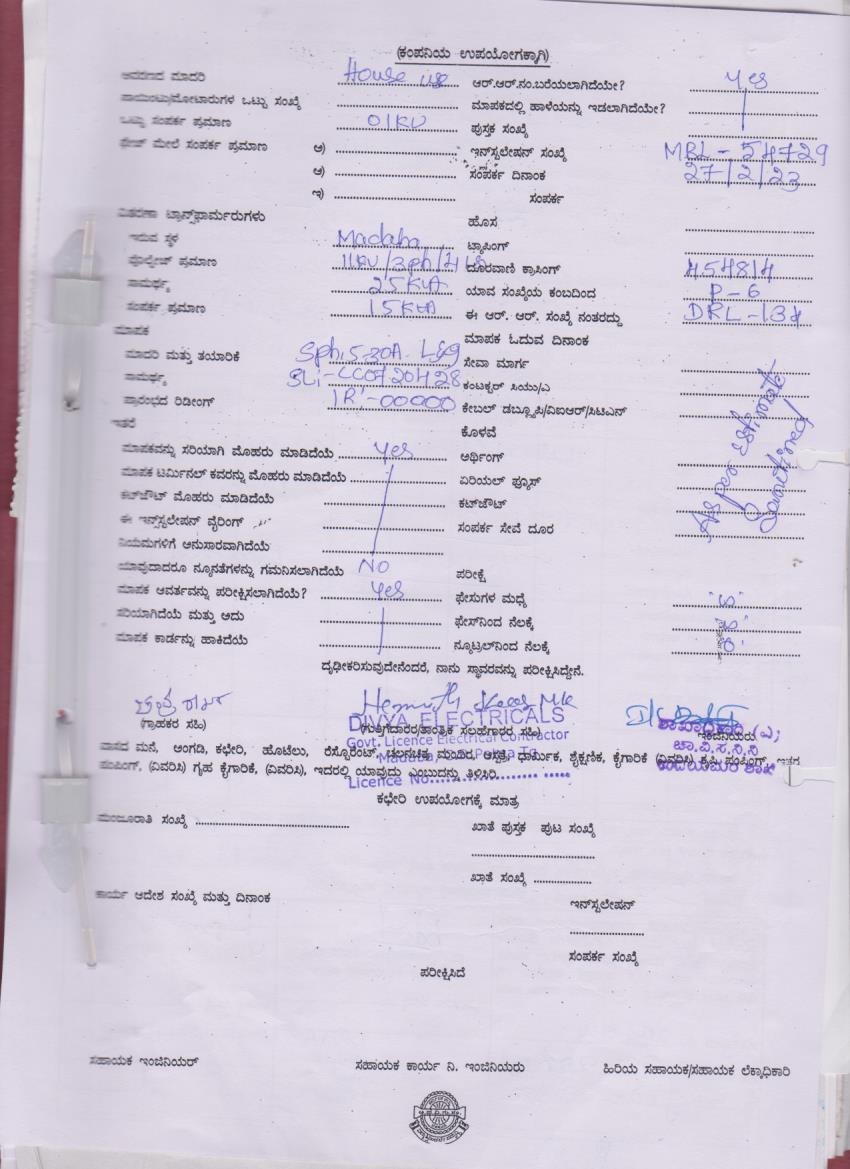 (ಕಂಪನಿಯ ಉಪಯೋಗಕ್ಕಾಗಿ)
ಆವರಣದ ಮಾದರಿ House use ಆರ್.ಆರ್.ನಂ.ಬರೆಯಲಾಗಿದೆಯೇ? Yes
ಪಾಯಿಂಟ್ಸು/ಮೋಟಾರುಗಳ ಒಟ್ಟು ಸಂಖ್ಯೆ ಮಾಪಕದಲ್ಲಿ ಹಾಳೆಯನ್ನು ಇಡಲಾಗಿದೆಯೇ?
ಒಟ್ಟು ಸಂಪರ್ಕ ಪ್ರಮಾಣ 01KV ಪುಸ್ತಕ ಸಂಖ್ಯೆ
ಫೇಜ್ ಮೇಲೆ ಸಂಪರ್ಕ ಪ್ರಮಾಣ ಅ) ಇನ್‌ಸ್ಟಲೇಷನ್ ಸಂಖ್ಯೆ MBL-54729
ಆ) ಸಂಪರ್ಕ ದಿನಾಂಕ 27/2/23
ಇ) ಸಂಪರ್ಕ
ವಿತರಣಾ ಟ್ರಾನ್ಸ್‌ಫಾರ್ಮರುಗಳು ಹೊಸ
ಇರುವ ಸ್ಥಳ Madaba ಟ್ಯಾಪಿಂಗ್
ವೋಲ್ಟೇಜ್ ಪ್ರಮಾಣ 11KV/3ph/ ದೂರವಾಣಿ ಕ್ರಾಸಿಂಗ್ 454814
ಸಾಮರ್ಥ್ಯ 25KVA ಯಾವ ಸಂಖ್ಯೆಯ ಕಂಬದಿಂದ P-6
ಸಂಪರ್ಕ ಪ್ರಮಾಣ 15KVA ಈ ಆರ್. ಆರ್. ಸಂಖ್ಯೆ ನಂತರದ್ದು DRL-134
ಮಾಪಕ ಮಾಪಕ ಓದುವ ದಿನಾಂಕ
ಮಾದರಿ ಮತ್ತು ತಯಾರಿಕೆ Sph, 5-30A L&G ಸೇವಾ ಮಾರ್ಗ
ಸಾಮರ್ಥ್ಯ SLi-LC0720428 ಕಂಟಕ್ಟರ್ ಸಿಯು/ಎ
ಪ್ರಾರಂಭದ ರಿಡೀಂಗ್ IR-00000 ಕೇಬಲ್ ಡಬ್ಲ್ಯೂಪಿ/ವಿಐಆರ್/ಸಿಟಿಎಸ್
ಇತರೆ ಕೊಳವೆ
ಮಾಪಕವನ್ನು ಸರಿಯಾಗಿ ಮೊಹರು ಮಾಡಿದೆಯೆ Yes ಅರ್ಥಿಂಗ್
ಮಾಪಕ ಟರ್ಮಿನಲ್ ಕವರನ್ನು ಮೊಹರು ಮಾಡಿದೆಯೆ ಏರಿಯಲ್ ಫ್ಯೂಸ್
ಕಟ್‌ಔಟ್ ಮೊಹರು ಮಾಡಿದೆಯೆ ಕಟ್‌ಔಟ್
ಈ ಇನ್‌ಸ್ಟಲೇಷನ ವೈರಿಂಗ್ ಸಂಪರ್ಕ ಸೇವೆ ದೂರ
As per estimate Sanctined
ನಿಯಮಗಳಿಗೆ ಅನುಸಾರವಾಗಿದೆಯೆ
ಯಾವುದಾದರೂ ನ್ಯೂನತೆಗಳನ್ನು ಗಮನಿಸಲಾಗಿದೆಯೆ NO ಪರೀಕ್ಷೆ
ಮಾಪಕ ಆವರ್ತವನ್ನು ಪರೀಕ್ಷಿಸಲಾಗಿದೆಯೆ? Yes ಫೇಸುಗಳ ಮಧ್ಯೆ
ಸರಿಯಾಗಿದೆಯೆ ಮತ್ತು ಅದು ಫೇಸ್‌ನಿಂದ ನೆಲಕ್ಕೆ
ಮಾಪಕ ಕಾರ್ಡನ್ನು ಹಾಕಿದೆಯೆ ನ್ಯೂಟ್ರಲ್‌ನಿಂದ ನೆಲಕ್ಕೆ
ದೃಢೀಕರಿಸುವುದೇನೆಂದರೆ, ನಾನು ಸ್ಥಾವರವನ್ನು ಪರೀಕ್ಷಿಸಿದ್ದೇನೆ.
(ಗ್ರಾಹಕರ ಸಹಿ) (ಗುತ್ತಿಗೆದಾರರ/ತಾಂತ್ರಿಕ ಸಲಹೆಗಾರರ ಸಹಿ) ಇಂಜಿನಿಯರು
DIVYA ELECTRICALS
Govt. Licence Electrical Contractor
Licence No.
ಶಾಖಾಧಿಕಾರಿ (ವಿ)
ಚಾ.ವಿ.ಸ.ನಿ.ನಿ
ವಾಸದ ಮನೆ, ಅಂಗಡಿ, ಕಛೇರಿ, ಹೊಟೆಲು, ರೆಸ್ಟೊರೆಂಟ್, ಚಲನಚಿತ್ರ ಮಂದಿರ, ಆಸ್ಪತ್ರೆ, ಧಾರ್ಮಿಕ, ಶೈಕ್ಷಣಿಕ, ಕೈಗಾರಿಕೆ (ವಿವರಿಸಿ) ಕೃಷಿ ಪಂಪಿಂಗ್, ಇತರ
ಪಂಪಿಂಗ್, (ವಿವರಿಸಿ) ಗೃಹ ಕೈಗಾರಿಕೆ, (ವಿವರಿಸಿ), ಇದರಲ್ಲಿ ಯಾವುದು ಎಂಬುದನ್ನು ತಿಳಿಸಿರಿ.
ಕಛೇರಿ ಉಪಯೋಗಕ್ಕೆ ಮಾತ್ರ
ಮಂಜೂರಾತಿ ಸಂಖ್ಯೆ ಖಾತೆ ಪುಸ್ತಕ ಪುಟ ಸಂಖ್ಯೆ
ಖಾತೆ ಸಂಖ್ಯೆ
ಕಾರ್ಯ ಆದೇಶ ಸಂಖ್ಯೆ ಮತ್ತು ದಿನಾಂಕ ಇನ್‌ಸ್ಟಲೇಷನ್
ಸಂಪರ್ಕ ಸಂಖ್ಯೆ
ಪರೀಕ್ಷಿಸಿದೆ
ಸಹಾಯಕ ಇಂಜಿನಿಯರ್ ಸಹಾಯಕ ಕಾರ್ಯ ನಿ. ಇಂಜಿನಿಯರು ಹಿರಿಯ ಸಹಾಯಕ/ಸಹಾಯಕ ಲೆಕ್ಕಾಧಿಕಾರಿ